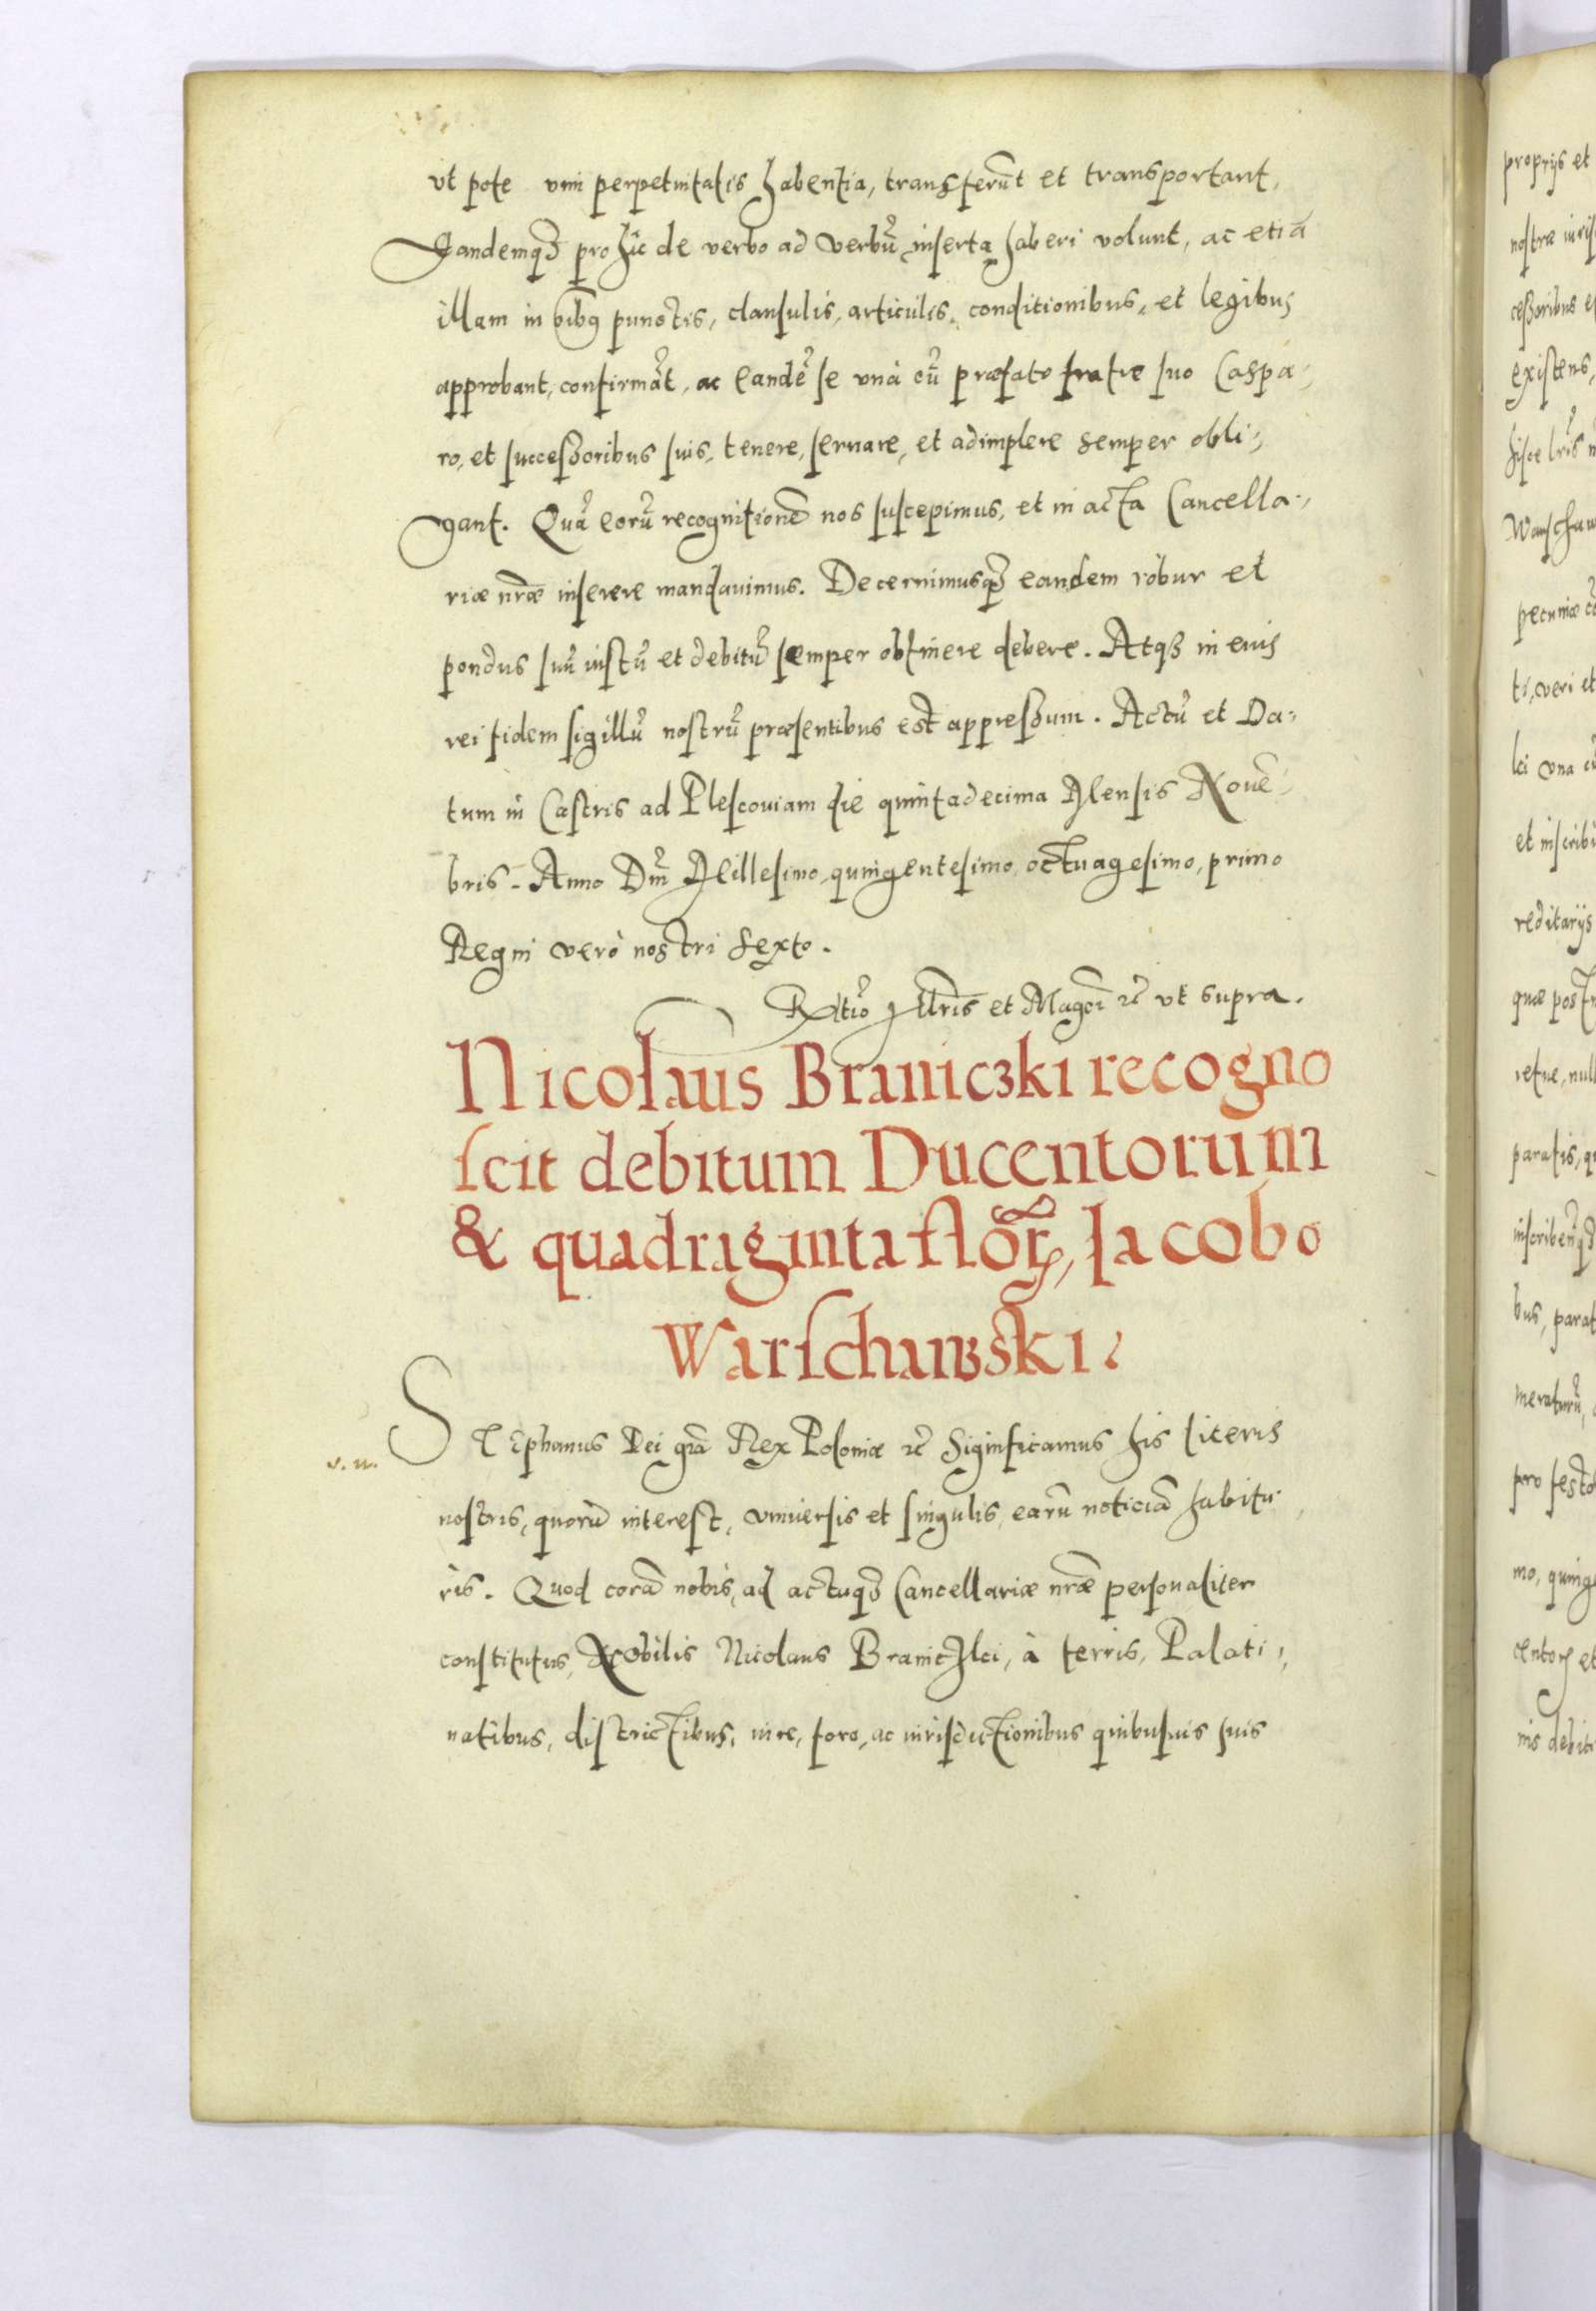 vt pote vim perpetuitatis habentia, transferũt et transportant,
Eandemqȝ pro hic de verbo ad verbũ inserta haberi volunt, ac etiã
illam in oĩbꝯ punctis, clausulis, articulis, conditionibus, et legibus
approbant, confirmãt, ac eandẽ se unà cũ præfato fratre suo Caspa-
ro, et successoribus suis, tenere, seruare, et adimplere semper obli-
gant. Quã eorũ recognitionẽ nos suscepimus, et in acta Cancella-
riæ nr̃æ inserere mandauimus. Decernimusqȝ eandem robur et
pondus suũ iustũ et debitũ semper obtinere debere. Atqȝ in euis
rei fidem sigillũ nostrũ præsentibus est appressum. Actũ et Da-
tum in Castris ad Plescoviam die quintadecima Mensis Nouẽ-
bris. Anno Dm̃ Millesimo, quingentesimo, octuagesimo, primo
Regni verò nostri Sexto.
Rltiõ Illris et Magci ꝛc̃ vt supra.
Nicolaus Braniczki recogno
scit debitum Ducentorum
& quadraginta florꝝ, Iacobo
Warschawski.
STephanus Dei grã Rex Poloniæ ꝛc̃ Significamus his literis
v. u.
nostris, quorũ interest, vniuersis et singulis, earũ noticiã habitu-
ris. Quod corã nobis, ad actuqȝ Cancellariæ nr̃æ personaliter
constitutus, Nobilis Nicolaus Braniczki, à terris, Palati-
natibus, districtibus, iure, foro, ac iurisdictionibus quibusuis suis
proprijs et
existens,
et inscribi
reditarijs
paratis, qu
pro festo
nis debiti